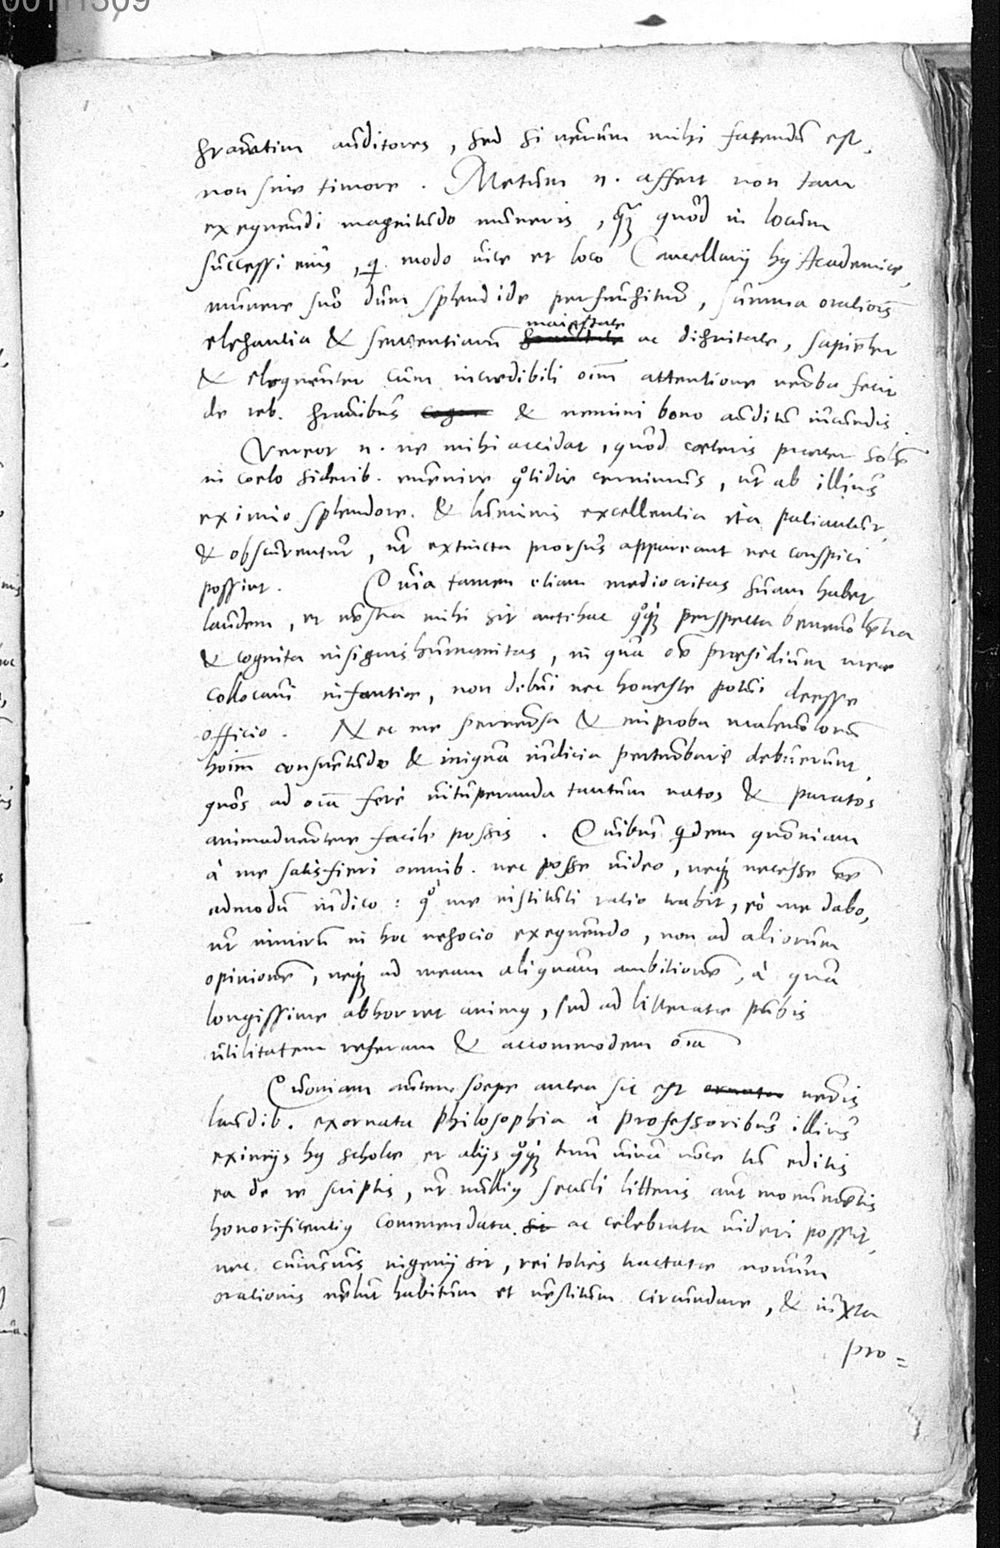 00111309
gravatim auditores, sed si verum mihi fatendũ est,
non sine timore. Metum n. affert non tam
exequendi magnitudo muneris, quã quod in locum
successi eius, q modo vice et loco Cancellarij hꝰ Academiæ,
munere suo dum splendide perfungitur, summa orationis
elegantia & sententiarum maiestate ac dignitate, sapienter
& eloquenter cum incredibili oĩm attentione verba fecit
de reb. gravibus & nemini bono auditu iucundis.
Vereor n. ne mihi accidat, quod cæteris præter Solẽ
in coelo siderib. evenire qͦtidie cernimus, ut ab illius
eximio splendore & luminis excellentia ita paliantur,
& obscurentur, ut extincta prorsus appareant nec conspici
possint. Quia tamen etiam mediocritas suam habet
laudem, et vestra mihi sit antihac qͦq; perspecta benevolẽtia
& cognita insignis humanitas, in qua oẽ præsidium meæ
collocavi infantiæ, non debui nec honeste potui deesse
officio. Nec me perversa & improba malevolorum
hoĩm consuetudo & iniqua iudicia perturbare debuerunt,
quos ad oĩa fere vituperanda tantum natos & paratos
animadvertere facile possis. Quibus qdem quoniam
à me satisfieri omnib. nec posse video, neq; necesse eẽ
admodũ iudico: qͦ me instituti ratio trahit, eò me dabo,
ut nimirũ in hoc negocio exequendo, non ad aliorum
opinionẽ, neq; ad meam aliquam ambitionẽ, à qua
longissime abhorret animꝰ, sed ad litteratæ pubis
utilitatem referam & accommodem oĩa
Quoniam autem sæpe antea sic est veris
laudib. exornata Philosophia à professoribus illius
eximijs hꝰ scholæ et alijs qͦq; tum viva voce tũ editis
ea de re scriptis, ut nulliꝰ seculi litteris aut monumẽtis
honorificentiꝰ commendata ac celebrata videri possit,
nec cuiusvis ingenij sit, rei toties tractatæ novum
orationis velut habitum et vestitum circundare, & iuxta
pro=